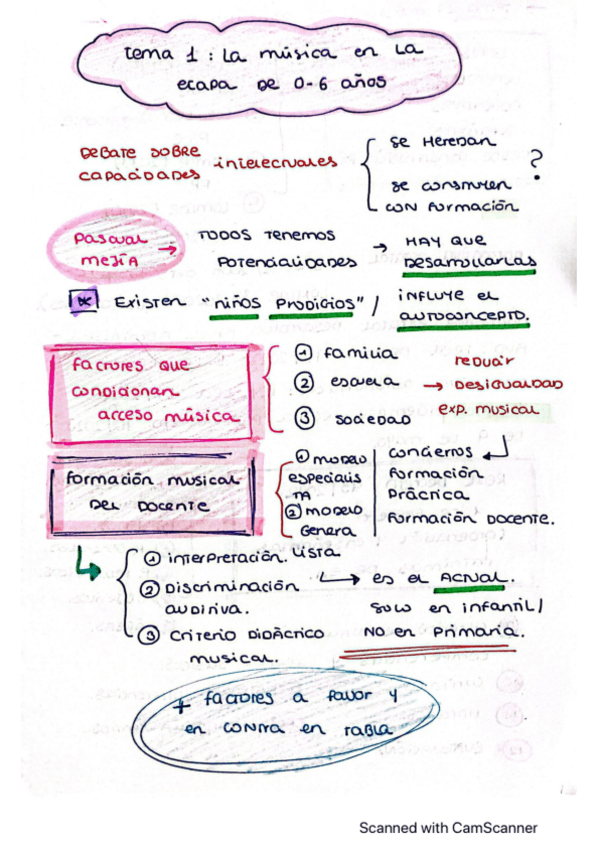 Tema 1: La música en la
etapa de 0-6 años
Debate sobre
capacidades
intelectuales
se heredan
se construyen
con formación
?
Pascual
Mejía
→ Todos tenemos
potencialidades
→ Hay que
desarrollarlas
* Existen "niños prodigios" /
influye el
autoconcepto.
Factores que
condicionan
acceso música
① familia
② escuela
③ sociedad
→ reducir
desigualdad
exp. musical
Formación musical
del docente
① modelo
especialis
ta
② modelo
genera
lista
conciertos
formación
práctica
formación docente.
① interpretación.
② Discriminación
auditiva.
③ Criterio didáctico
musical.
→ es el actual.
solo en infantil/
NO en primaria.
+ factores a favor y
en contra en tabla
Scanned with CamScanner